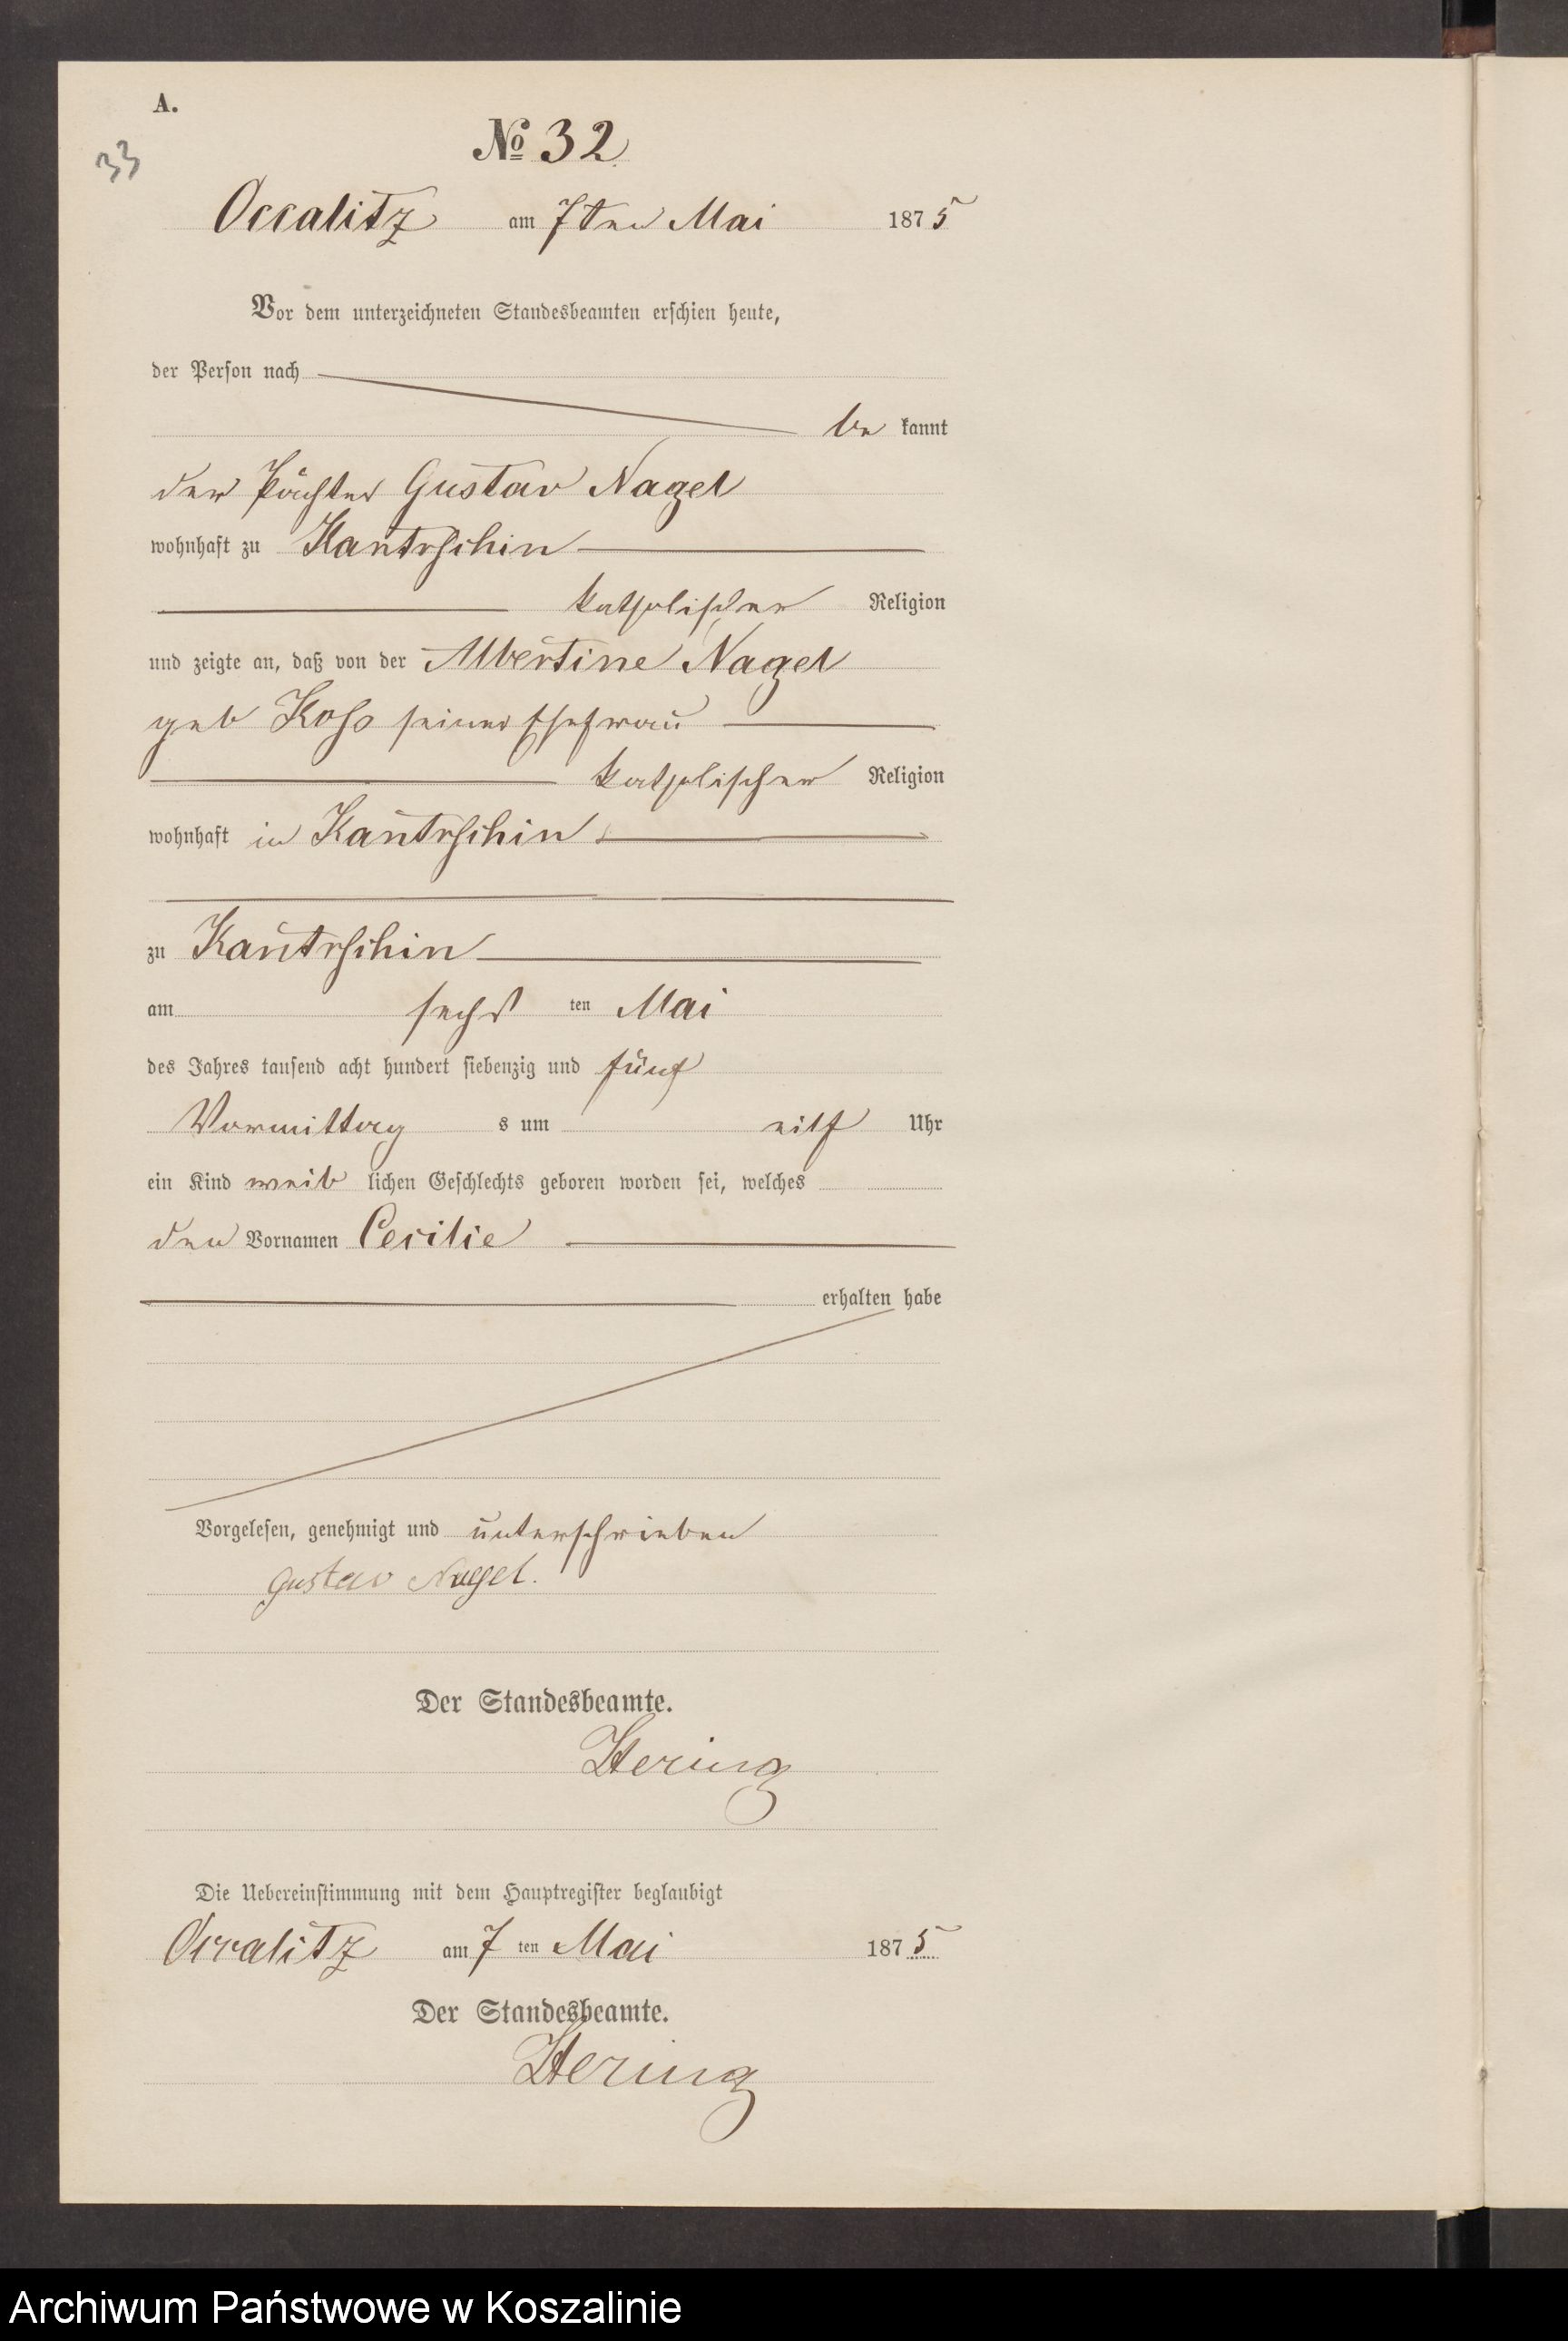 A.
33
No 32
Occalitz am 7ten Mai 1875
Vor dem unterzeichneten Standesbeamten erschien heute,
der Person nach
be kannt
der Pächter Gustav Nagel
wohnhaft zu Kantrschin
katholischer Religion
und zeigte an, daß von der Albertine Nagel
geb Koss seiner Ehefrau
katholischer Religion
wohnhaft in Kantrschin
zu Kantrschin
am sechs ten Mai
des Jahres tausend acht hundert siebenzig und fünf
Vormittag s um eilf Uhr
ein Kind weib lichen Geschlechts geboren worden sei, welches
den Vornamen Cecilie
erhalten habe
Vorgelesen, genehmigt und unterschrieben
Gustav Nagel.
Der Standesbeamte.
Hering
Die Uebereinstimmung mit dem Hauptregister beglaubigt
Occalitz am 7 ten Mai 1875
Der Standesbeamte.
Hering
Archiwum Państwowe w Koszalinie